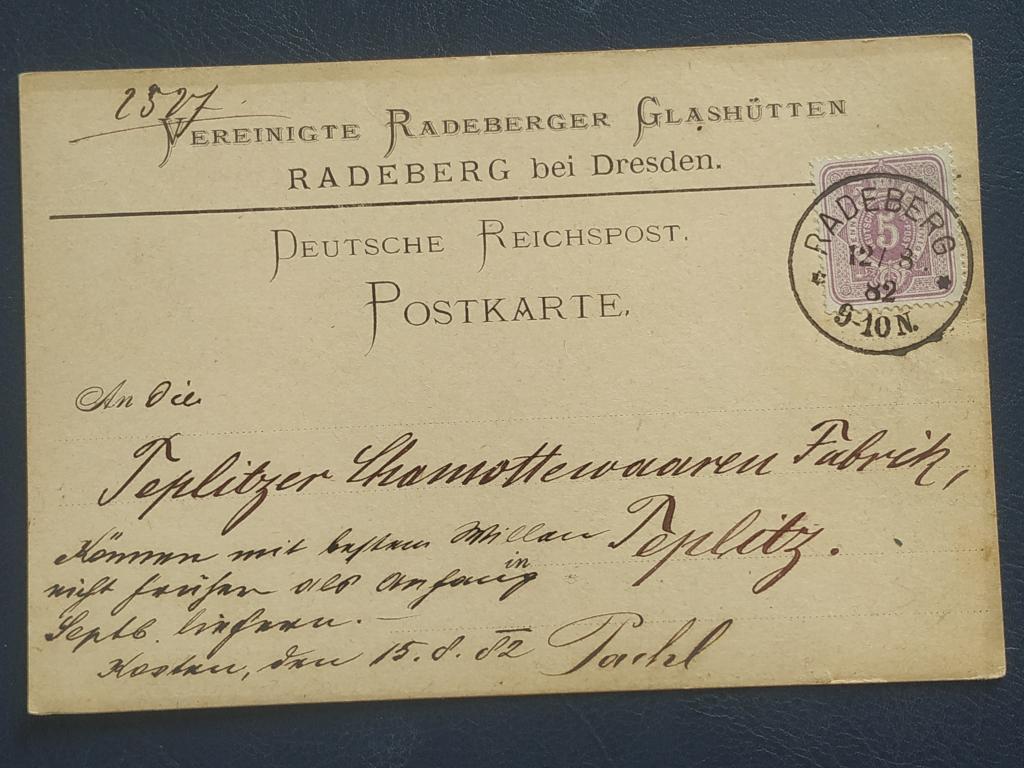 2527
VEREINIGTE RADEBERGER GLASHÜTTEN
RADEBERG bei Dresden.
DEUTSCHE REICHSPOST.
POSTKARTE.
RADEBERG
5
12/8.
82
9-10N.
An die
Teplitzer Chamottewaaren Fabrik,
Teplitz.
Können mit bestem Willen
nicht früher als Anfang
in
Septb. liefern.
Kosten, den 15.8.82